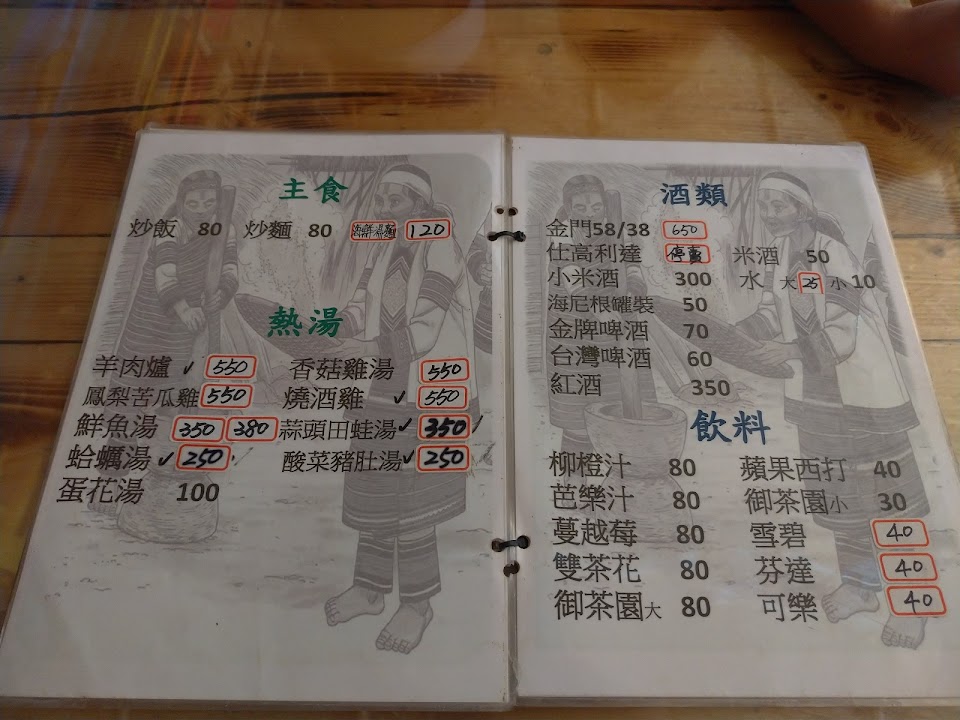 主食
炒飯 80 炒麵 80 海鮮湯麵 120
熱湯
羊肉爐 ✓ 550 香菇雞湯 550
鳳梨苦瓜雞 550 燒酒雞 ✓ 550
鮮魚湯 350 380 蒜頭田蛙湯 ✓ 350
蛤蠣湯 ✓ 250 酸菜豬肚湯 ✓ 250
蛋花湯 100
酒類
金門58/38 650
仕高利達 停賣 米酒 50
小米酒 300 水 大 25 小 10
海尼根罐裝 50
金牌啤酒 70
台灣啤酒 60
紅酒 350
飲料
柳橙汁 80 蘋果西打 40
芭樂汁 80 御茶園小 30
蔓越莓 80 雪碧 40
雙茶花 80 芬達 40
御茶園大 80 可樂 40